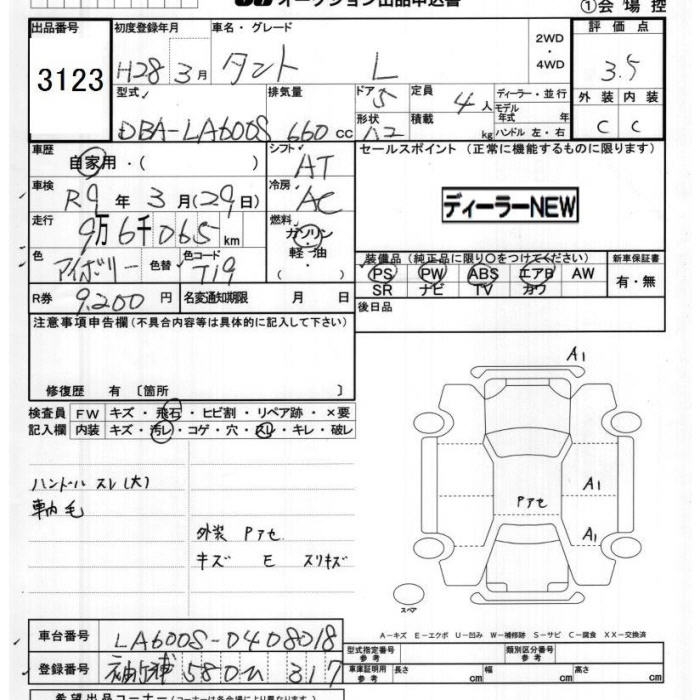 オークション出品申込書
①会場控
出品番号
3123
初度登録年月
H28年3月
車名・グレード
タント L
2WD
・
4WD
評価点
3.5
外装 内装
C C
型式
DBA-LA600S
排気量
660cc
ドア 5
形状
定員
4人
積載
kg
ディーラー・並行
モデル年式 年
ハンドル 左・右
車歴
自家用・( )
シフト
AT
車検
R9年3月(29日)
冷房
AC
走行
9万6千065km
燃料
ガソリン
軽・油
( ・ )
色
アイボリー
色替
色コード
T19
R券
9,200円
名変通知期限 月 日
セールスポイント (正常に機能するものに限ります)
ディーラーNEW
装備品 (純正品に限り○をつけてください)
PS PW ABS エアB AW
SR ナビ TV カワ
新車保証書
有・無
後日品
注意事項申告欄(不具合内容等は具体的に記入して下さい)
修復歴 有〔箇所 〕
検査員
記入欄
FW キズ・飛石・ヒビ割・リペア跡・×要
内装 キズ・汚レ・コゲ・穴・スレ・キレ・破レ
ハンドル スレ(大)
車内 毛
外装 Pアセ
キズ E スリキズ
A1
A1
Pアセ
A1
スペア
A-キズ E-エクボ U-凹み W-補修跡 S-サビ C-腐食 XX-交換済
車台番号
LA600S-0408018
登録番号
袖ケ浦 580 317
型式指定番号
参考
類別区分番号
参考
車庫証明用
参考
長さ cm
幅 cm
高さ cm
希望出品コーナー(コーナー名は各会場により異なります)